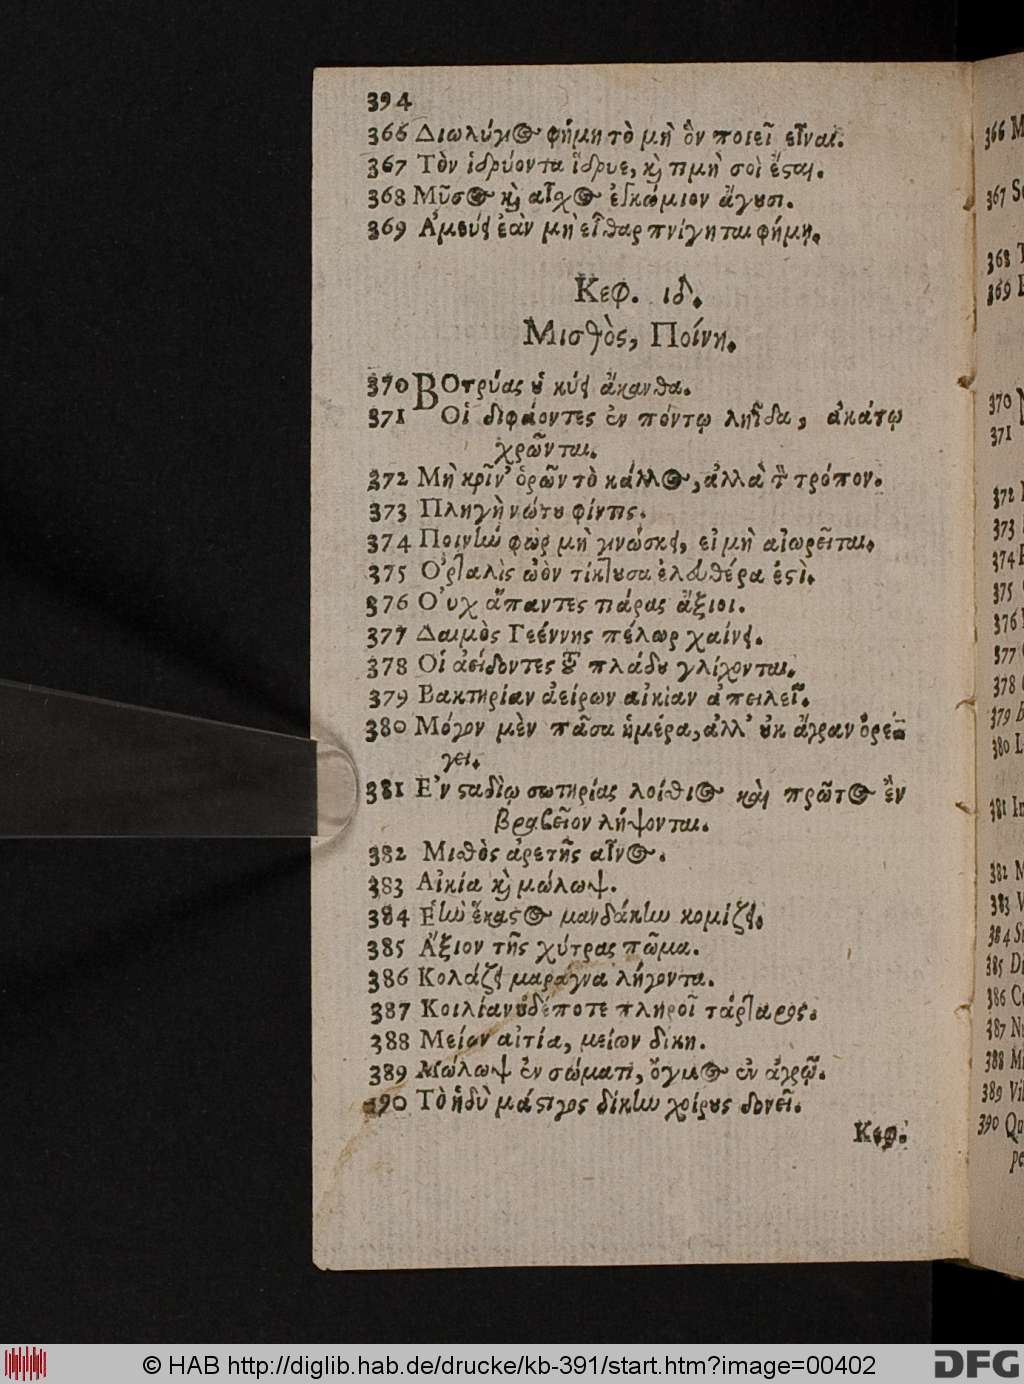 394
366 Διωλύγιος φήμη τὸ μὴ ὂν ποιεῖ εἶναι.
367 Τὸν ἱδρύοντα ἵδρυε, καὶ τιμὴ σοὶ ἔσται.
368 Μῦσος καὶ αἶσχος ἐγκώμιον ἄγουσι.
369 Ἀμεύει ἐὰν μὴ εἶθαρ πνίγηται φήμη.
Κεφ. ιδ.
Μισθὸς, Ποίνη.
370 ΒΟτρύας οὐ κύει ἄκανθα.
371 Οἱ διφάοντες ἐν πόντῳ ληΐδα, ἀκάτῳ
χρῶνται.
372 Μὴ κρῖν' ὁρῶν τὸ κάλλος, ἀλλὰ τὸν τρόπον.
373 Πληγὴ νώτου φίντις.
374 Ποινὴν φὼρ μὴ γινώσκει, εἰ μὴ αἰωρεῖται.
375 Ὀρταλὶς ὠὸν τίκτουσα ἐλευθέρα ἐστὶ.
376 Οὐχ ἅπαντες τιάρας ἄξιοι.
377 Δαιμὸς Γεέννης πέλωρ χαίνει.
378 Οἱ ἀείδοντες τοῦ πλάδου γλίχονται.
379 Βακτηρίαν ἀείρων αἰκίαν ἀπειλεῖ.
380 Μόγον μὲν πᾶσα ἡμέρα, ἀλλ' οὐκ ἄγραν ὀρέ-
γει.
381 Ἐν σταδίῳ σωτηρίας λοίσθιος καὶ πρῶτος ἓν
βραβεῖον λήψονται.
382 Μισθὸς ἀρετῆς αἶνος.
383 Αἰκία καὶ μώλωψ.
384 Ἑὴν ἕκαστος μανδάκην κομίζει.
385 Ἄξιον τῆς χύτρας πῶμα.
386 Κολάζει μαράγνα λήγοντα.
387 Κοιλίαν οὐδέποτε πληροῖ τάρταρος.
388 Μείων αἰτία, μείων δίκη.
389 Μώλωψ ἐν σώματι, ὄγμος ἐν ἀγρῷ.
390 Τὸ ἡδὺ μάστιγος δίκην χοίρους δονεῖ.
Κεφ.
366 M
367 S
368 T
369
370
371
372
373
374
375
376
377
378
379
380 L
381 In
382 M
383 V
384 S
385 D
386 C
387 N
388 M
389 Vi
390 Qu
pe
© HAB http://diglib.hab.de/drucke/kb-391/start.htm?image=00402
DFG